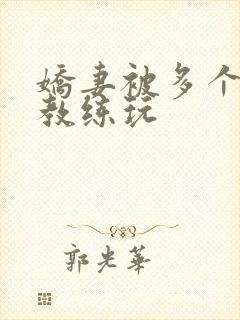 嬌妻被多个
教练玩
郭光華